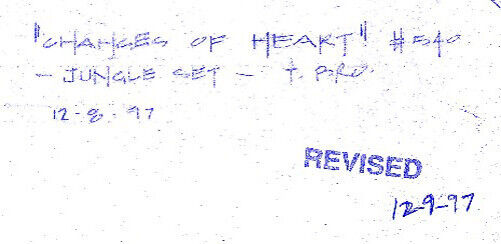 "CHANGES OF HEART" #540
- JUNGLE SET - t. BRO.
12-8-97
REVISED
12-9-97